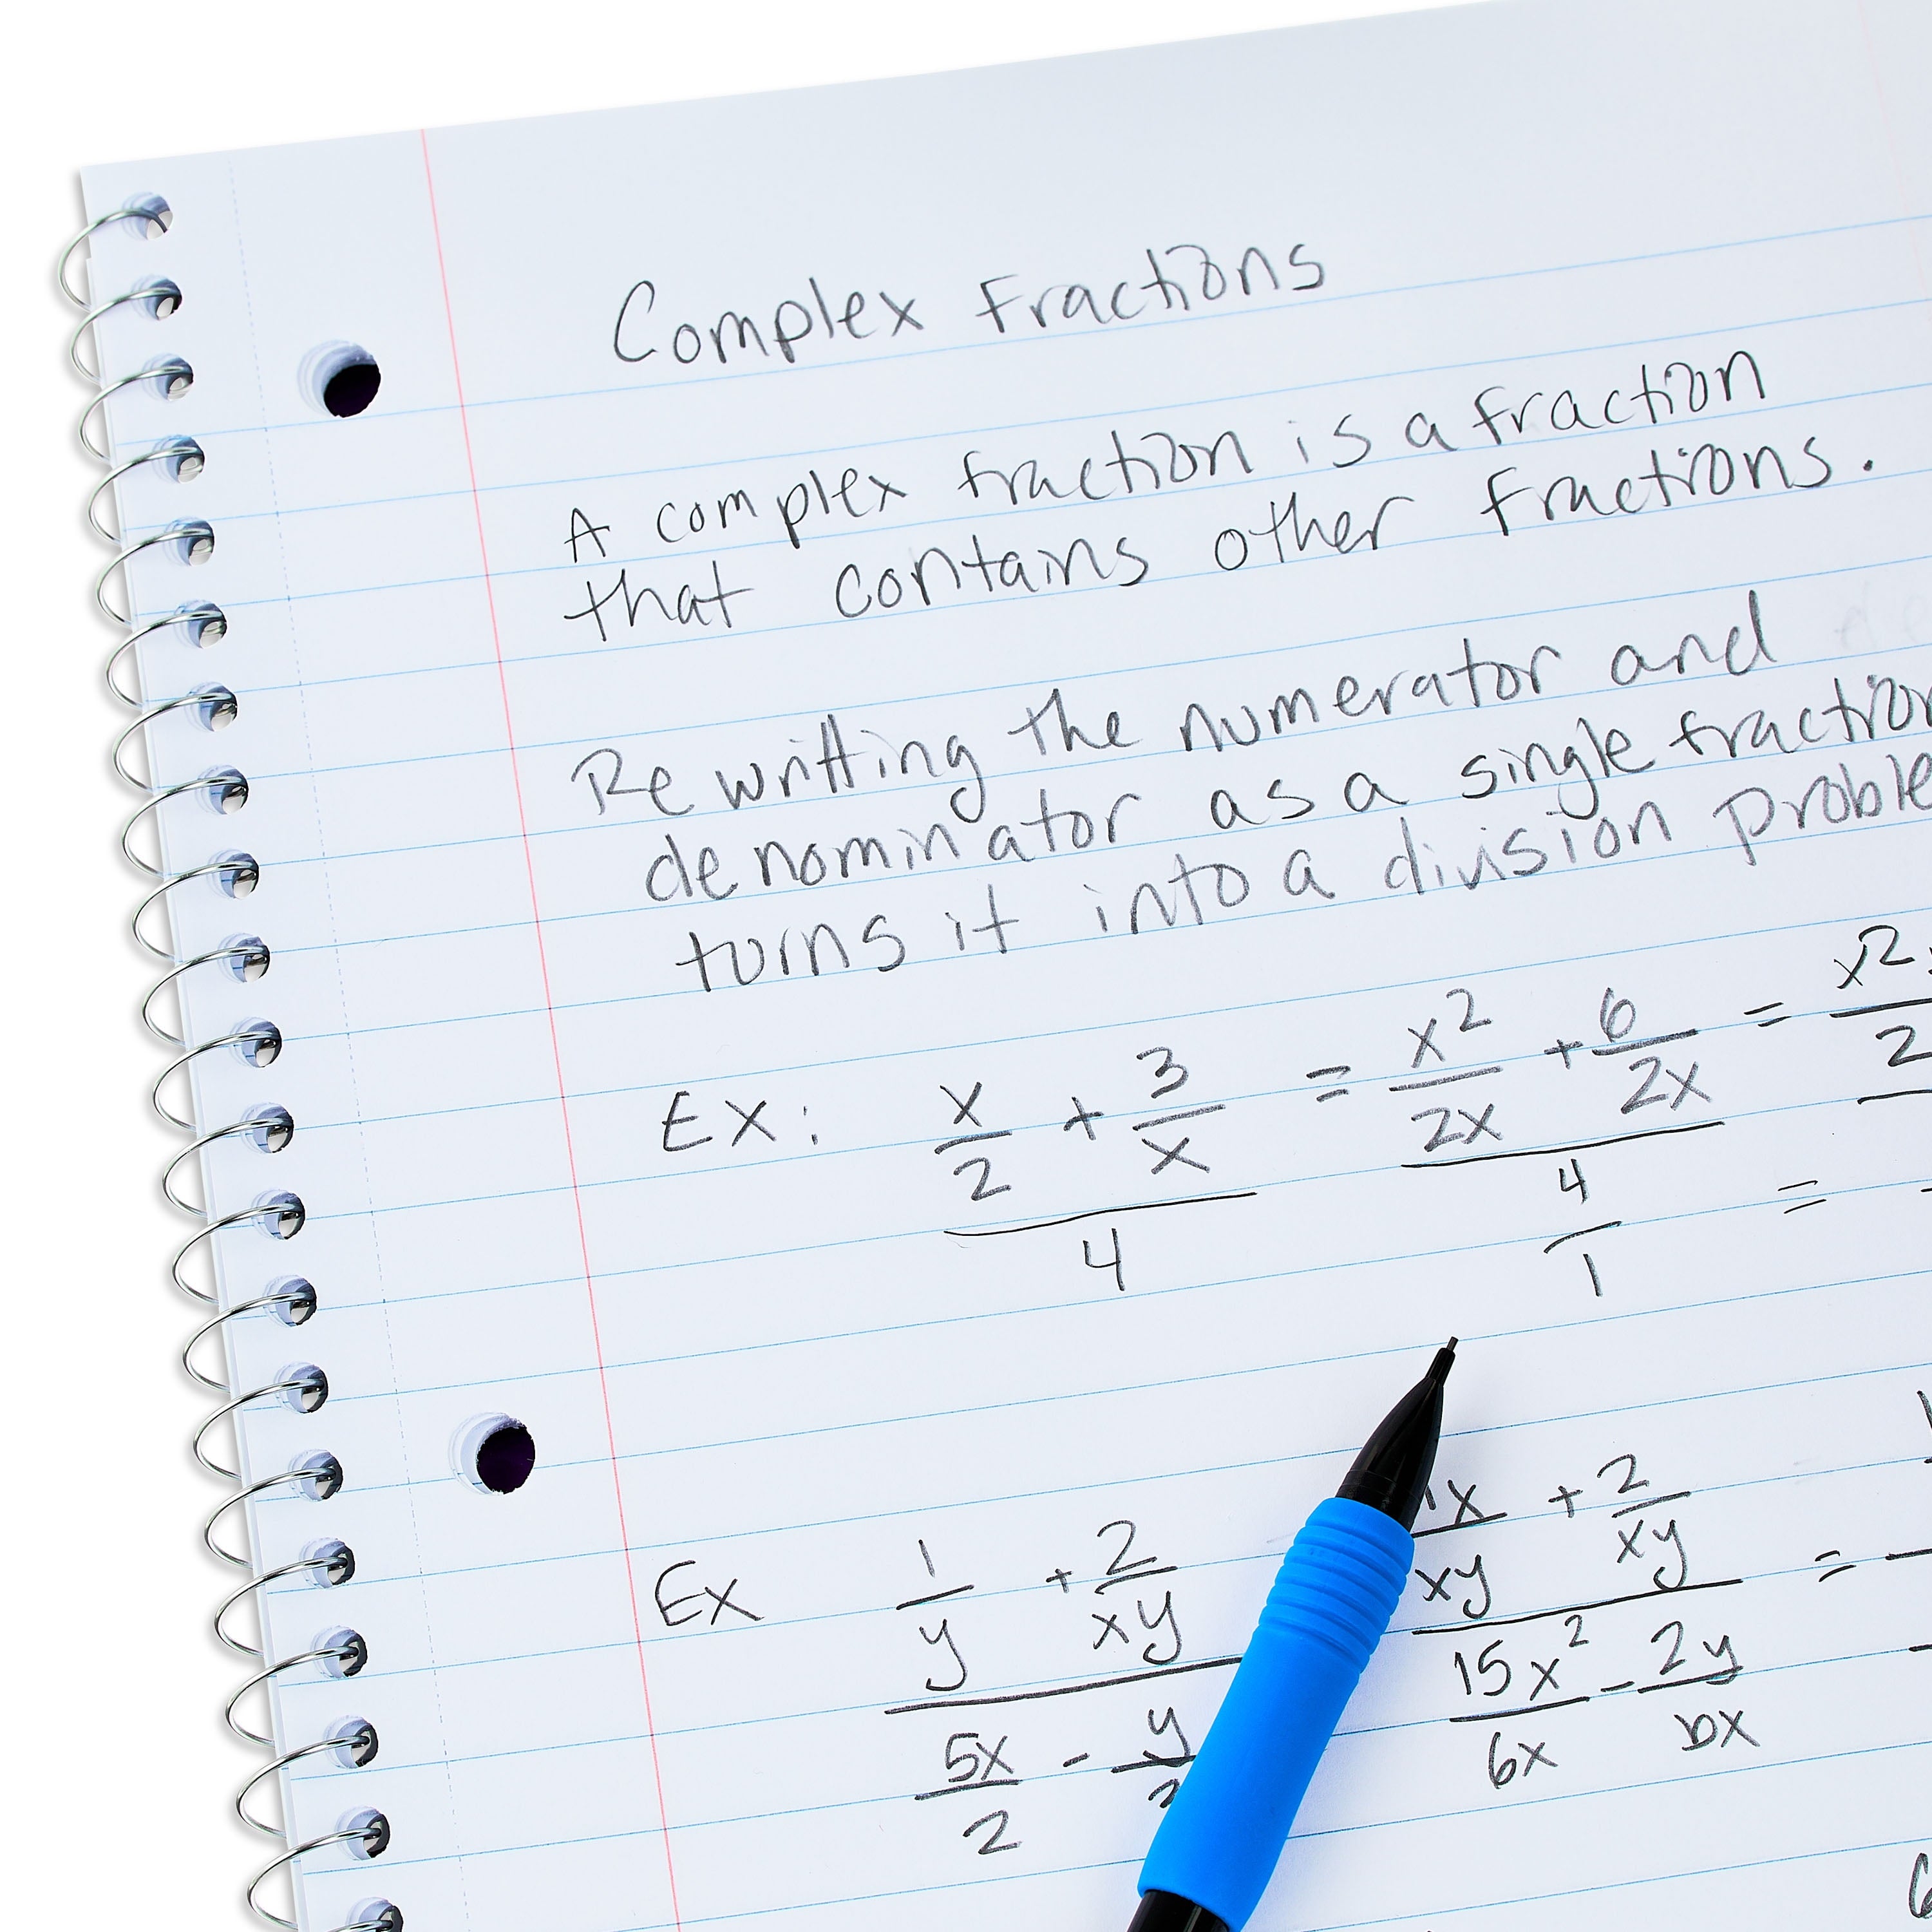 Complex Fractions
A complex fraction is a fraction
that contains other fractions.
Rewritting the numerator and
denominator as a single fraction
turns it into a division
Ex: x/2 + 3/x = x²/2x + 6/2x = x²
4 4/1 =
Ex 1/y + 2/xy 1x/xy + 2/xy =
5x/2 - y 15x²/6x - 2y/6x